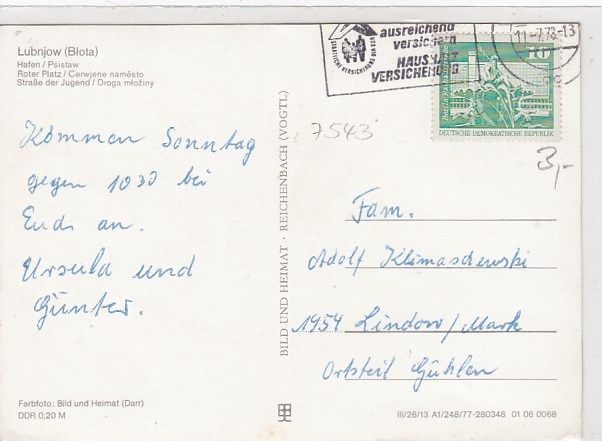 Lubnjow (Błota)
Hafen / Pśistaw
Roter Platz / Cerwjene naměsto
Straße der Jugend / Droga młoźiny
Kommen Sonntag
gegen 1030 bei
Euch an.
Ursula und
Günter.
Farbfoto: Bild und Heimat (Darr)
DDR 0,20 M
BILD UND HEIMAT · REICHENBACH (VOGTL)
ausreichend
versichern
HAUSHALT
VERSICHERUNG
STAATLICHE VERSICHERUNG DER DDR
11.-7.78-13
10
DEUTSCHE DEMOKRATISCHE REPUBLIK
7543
3,-
Fam.
Adolf Klimaschewski
1954 Lindow/Mark
Ortsteil Gühlen
III/26/13 A1/248/77-280348 01 06 0068